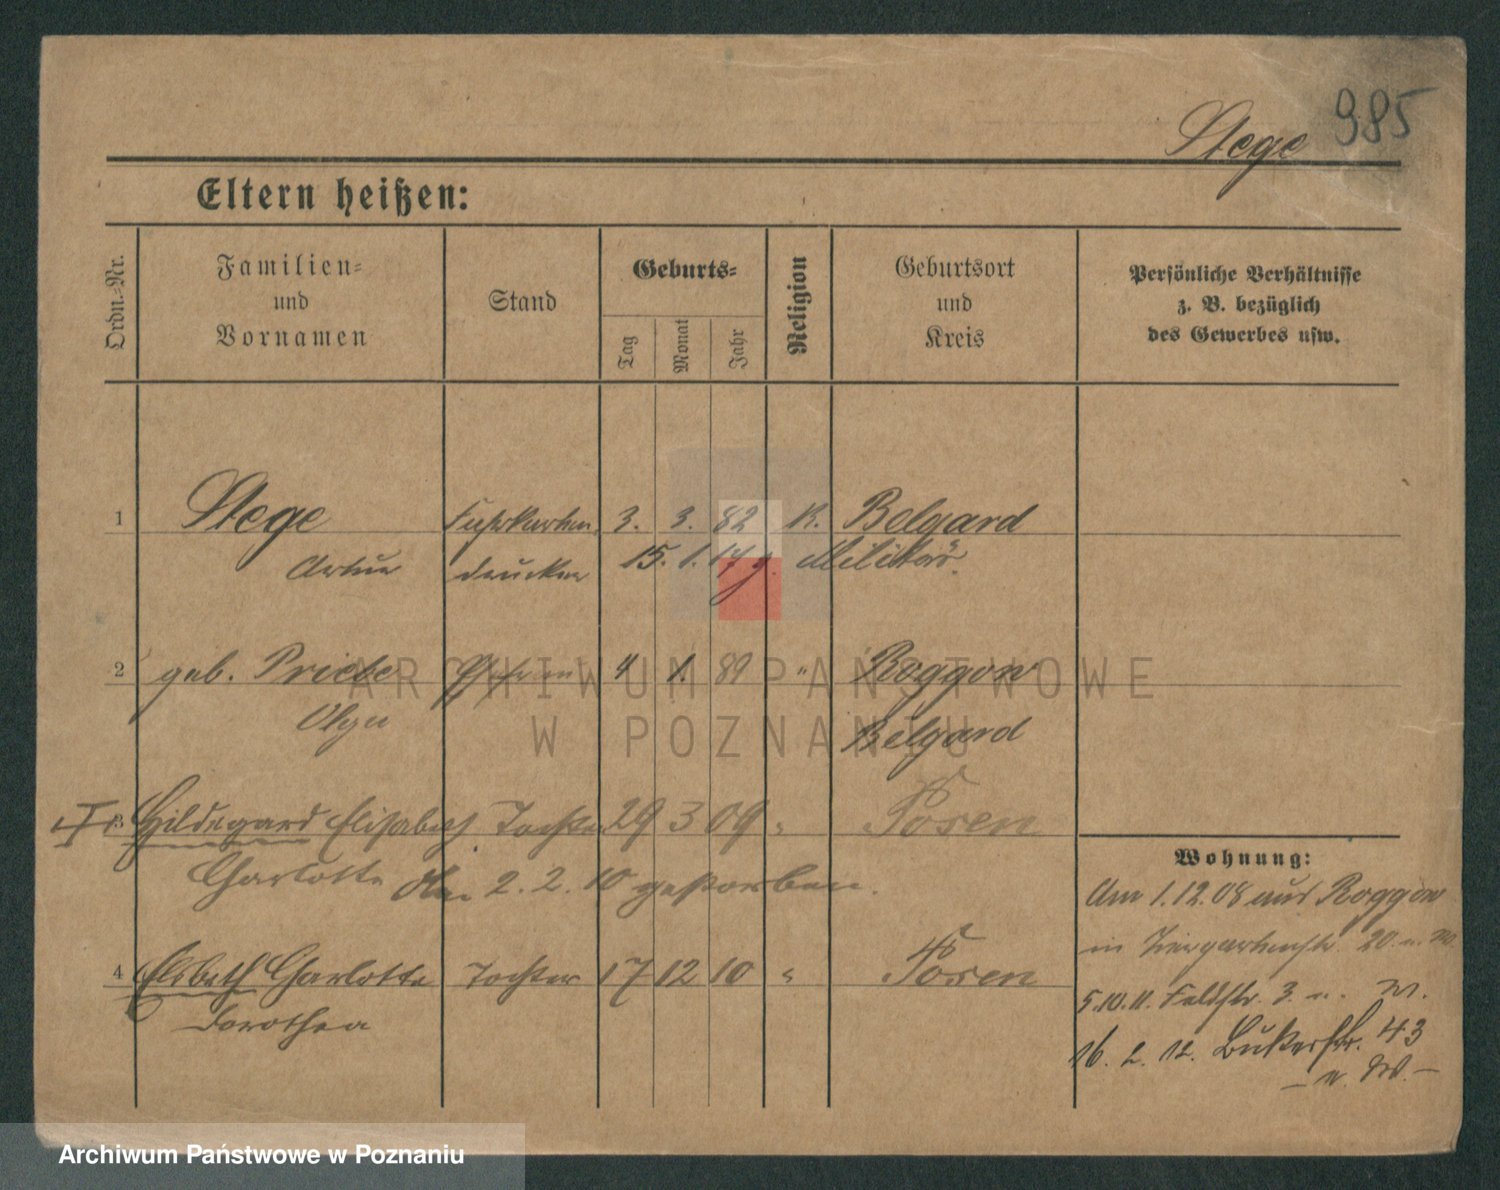 985
Stege
Eltern heißen:
Ordn.-Nr.
Familien-
und
Vornamen
Stand
Geburts-
Tag
Monat
Jahr
Religion
Geburtsort
und
Kreis
Persönliche Verhältnisse
z. B. bezüglich
des Gewerbes usw.
1 Stege Fahrkarten 3. 3. 82 K. Belgard
Artur drucker 15. 1. 17 z. Militär.
2 geb. Priebe Ehefrau 4 1. 89 " Roggow
Olga Belgard
3 Hildegard Elisabeth Tochter 29 3 09 " Posen
Charlotte 2. 2. 10 gestorben.
4 Elsbeth Charlotte Tochter 17 12 10 " Posen
Dorothea
Wohnung:
Am 1.12.08 aus Roggow
in Tiergartenstr. 20.
5.10.11. Feldstr. 3.
16. 2. 12. Bukerstr. 43
ARCHIWUM PAŃSTWOWE
W POZNANIU
Archiwum Państwowe w Poznaniu